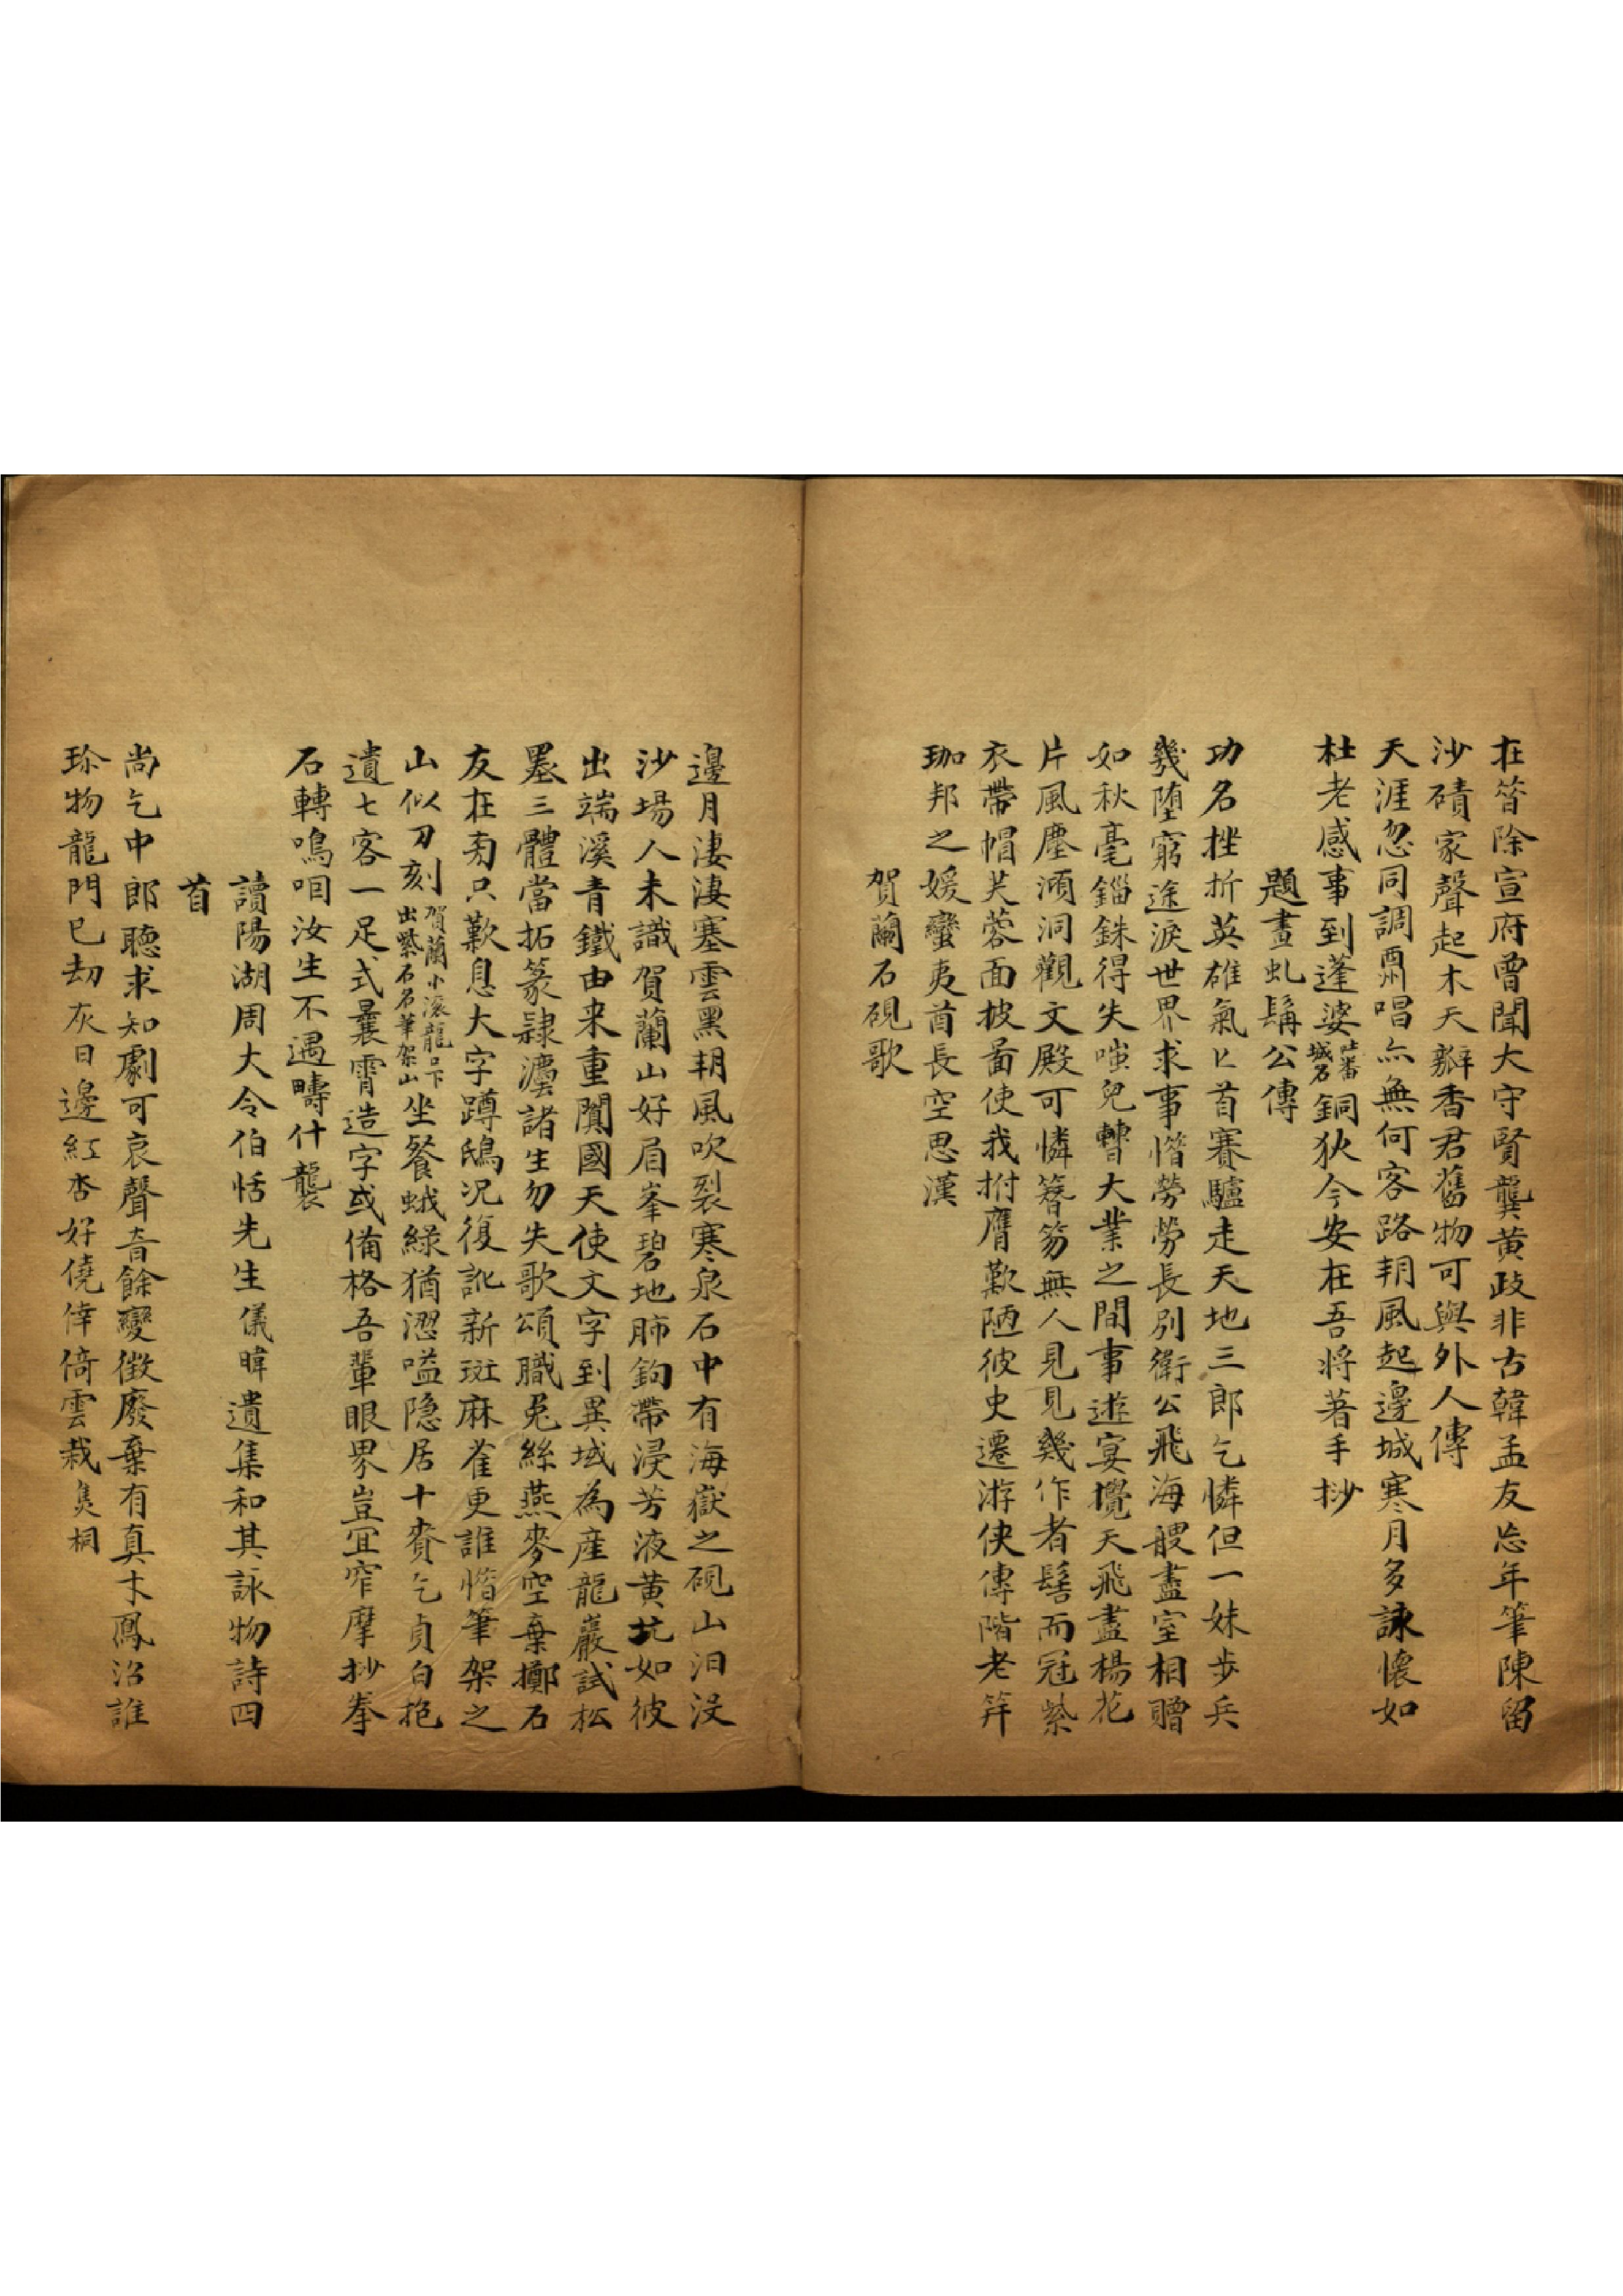 在笤除宣府曾聞大守賢龔黄政非古韓孟友忘年筆陳留
沙磧家聲起木天瓣香君舊物可與外人傳
天涯忽同調酉州唱亦無何客路朔風起邊城寒月多詠懷如
杜老感事到蓬婆吐蕃城名銅狄今安在吾将著手抄
題畫虬髯公傳
功名挫折英雄氣匕首賽驢走天地三郎乞憐但一妹步兵
幾堕窮途淚世界求事惜勞勞長別衛公飛海艘盡室相贈
如秋毫錙銖得失嗤兒曹大業之間事遊宴攪天飛盡楊花
片風塵澒洞觀文殿可憐簪笏無人見見幾作者髻而冠紫
衣帶帽芙蓉面披啚使我拊膺歎陋彼史遷游俠傳階老笄
珈邦之媛蠻夷酋長空思漢
賀蘭石硯歌
邊月淒淒塞雲黑朔風吹裂寒泉石中有海嶽之硯山汩沒
沙場人未識賀蘭山好眉峯碧地肺鉤帶浸芳液黄坑如彼
出端溪青鐵由来重闐國天使文字到異域為産龍巖試松
墨三體當拓篆隸瀍諸生勿失歌頌職兎絲燕麥空棄擲石
友在旁只歎息大字蹲鴟况復訛新斑麻雀更誰惜筆架之
山似刀刻賀蘭小滚龍口下出紫石名筆架山坐餐蛾綠猶澀嗌隐居十賚乞貞白抱
遺七客一足式曩霄造字或備格吾輩眼界豈宜窄摩抄拳
石轉鳴咱汝生不遇疇什襲
讀陽湖周大令伯恬先生儀暐遺集和其詠物詩四
首
尚乞中郎聽求知劇可哀聲音餘變徵廢棄有真才鳳沼誰
珎物龍門已劫灰日邊紅杏好僥倖倚雲栽㷊桐